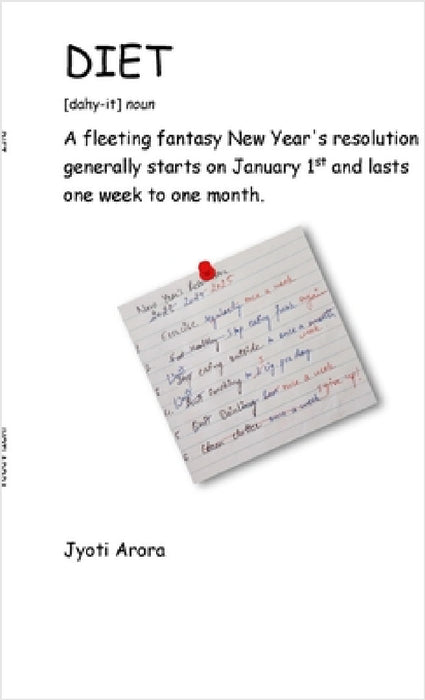 DIET
[dahy-it] noun
A fleeting fantasy New Year's resolution
generally starts on January 1st and lasts
one week to one month.
New Year's
2023 2024 2025
1. Exercise regularly once a week
2. Eat Healthy Stop eating junk again
3. Stop eating outside to once a month
week
4. Quit smoking to 1 cig per day
5. Quit Drinking once a week I give up!
6. Clean clutter once a week
Jyoti Arora